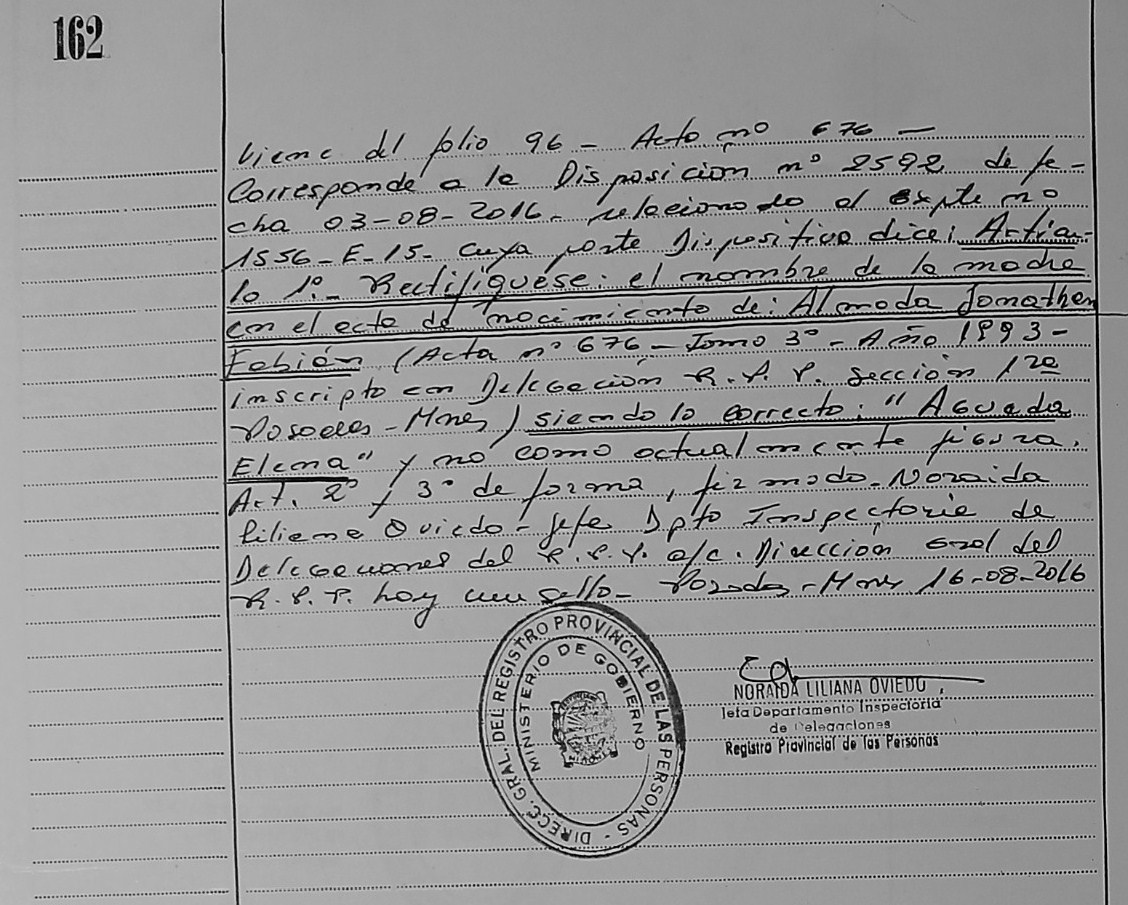 162
Viene del folio 96 - Acta nº 676 -
Corresponde a la Disposicion nº 2592 de fe-
cha 03-08-2016- relacionado al Expte nº
1556-E-15- cuya parte Dispositiva dice: Artícu-
lo 1º- Rectifíquese: el nombre de la madre
en el acta de nacimiento de: Almada Jonathan
Fabián (Acta nº 676 - Tomo 3º - Año 1993-
inscripto en Delegación R.P.P. Sección 1ra
Posadas - Mnes) siendo lo correcto: "Aguada
Elena" y no como actualmente figura.
Art. 2º y 3º de forma, firmado - Noraida
Liliana Oviedo - Jefe Dpto Inspectoria de
Delegaciones del R.P.P. a/c. Dirección Gral del
R.P.P. hay un sello - Posadas - Mnes 16-08-2016
DIRECC. GRAL. DEL REGISTRO PROVINCIAL DE LAS PERSONAS -
MINISTERIO DE GOBIERNO
NORAIDA LILIANA OVIEDO
Jefa Departamento Inspectoria
de Delegaciones
Registro Provincial de las Personas